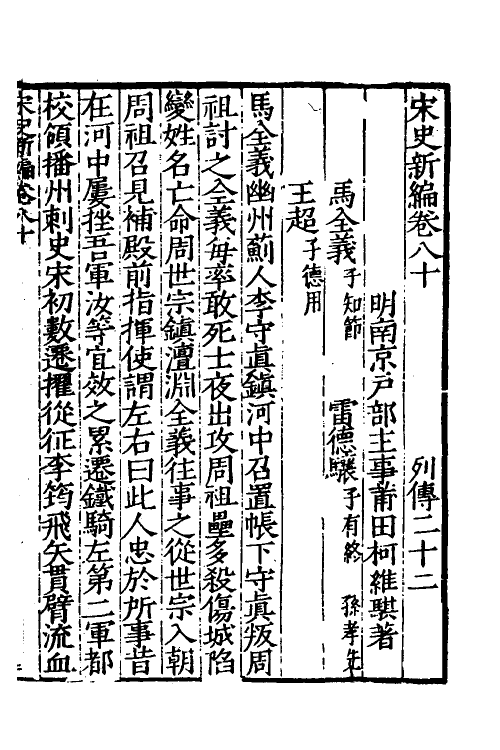 宋史新編卷八十　列傳二十二
明南京戶部主事莆田柯維騏著
馬全義子知節　雷德驤子有終　孫孝先
王超子德用
馬全義幽州薊人李守眞鎭河中召置帳下守眞叛周
祖討之全義每率敢死士夜出攻周祖壘多殺傷城陷
變姓名亡命周世宗鎭澶淵全義往事之從世宗入朝
周祖召見補殿前指揮使謂左右曰此人忠於所事昔
在河中屢挫吾軍汝等宜效之累遷鐵騎左第二軍都
校領播州刺史宋初數遷擢從征李筠飛矢貫臂流血
宋史新編卷八十